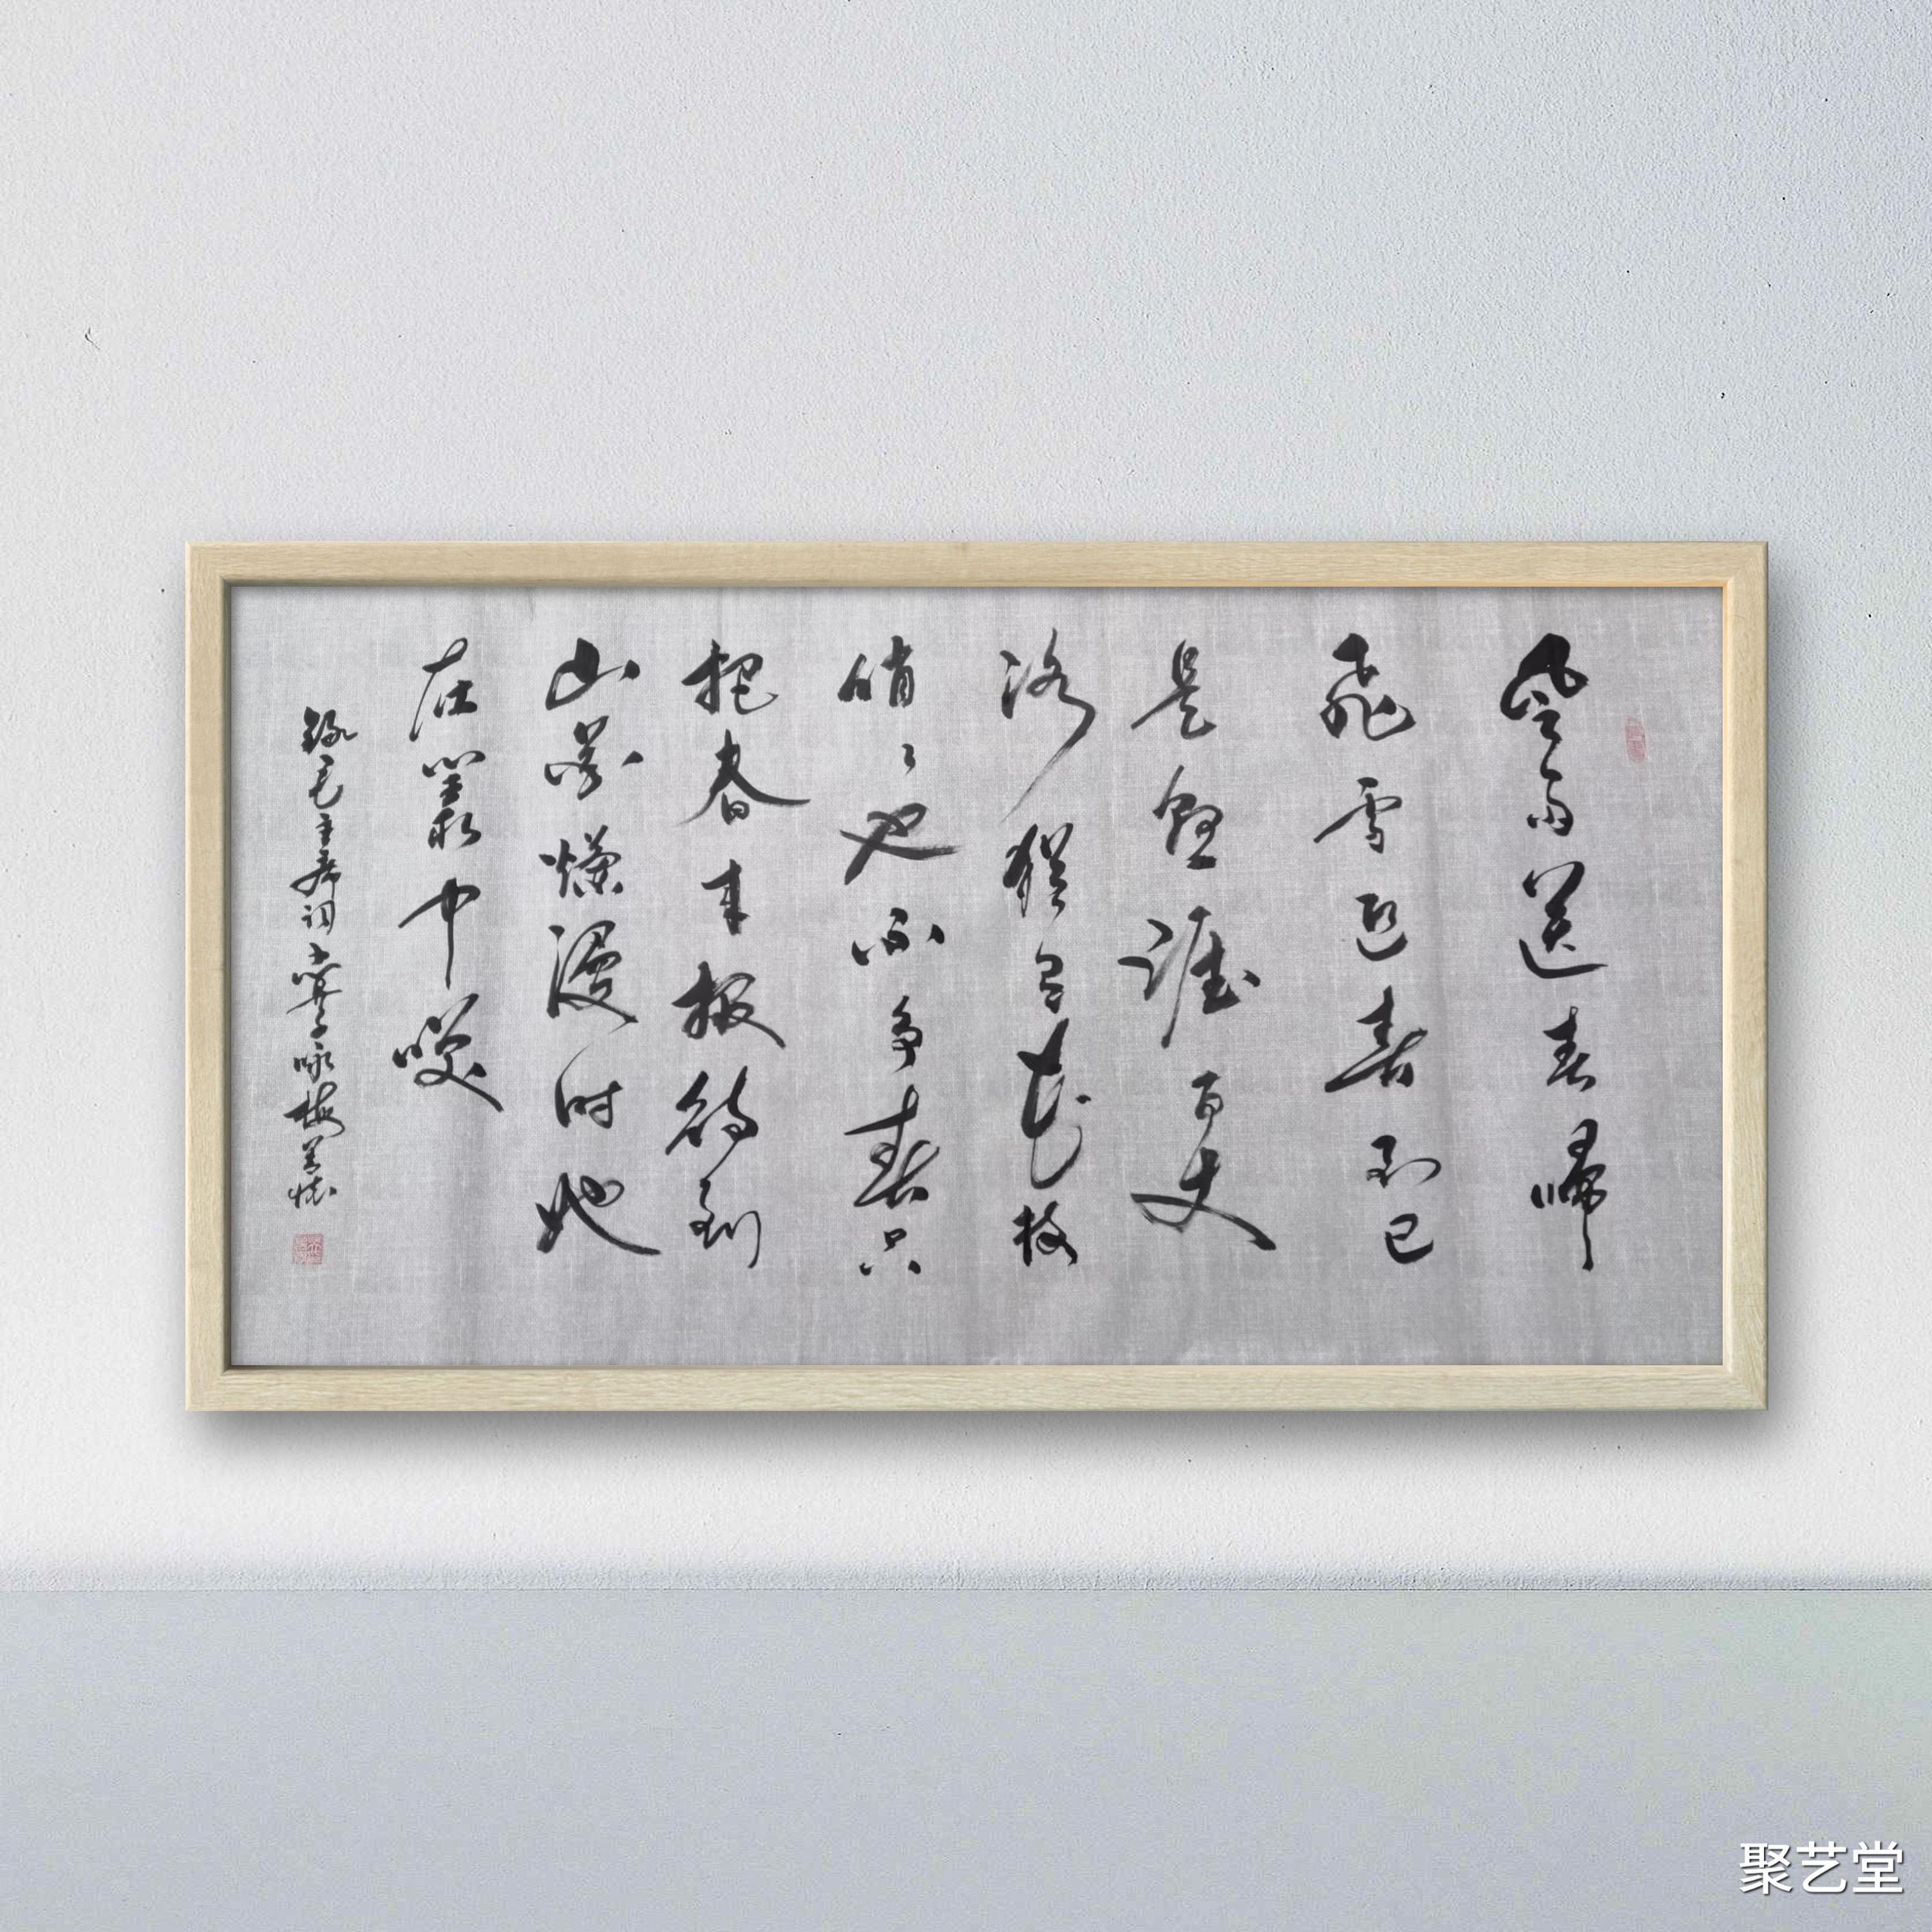 風雨送春歸
飛雪迎春到已
是懸涯百丈
冰猶有花枝
俏々也不争春只
把春来报待到
山花爛漫时她
在叢中咲
錄毛主席词卜算子咏梅
聚艺堂